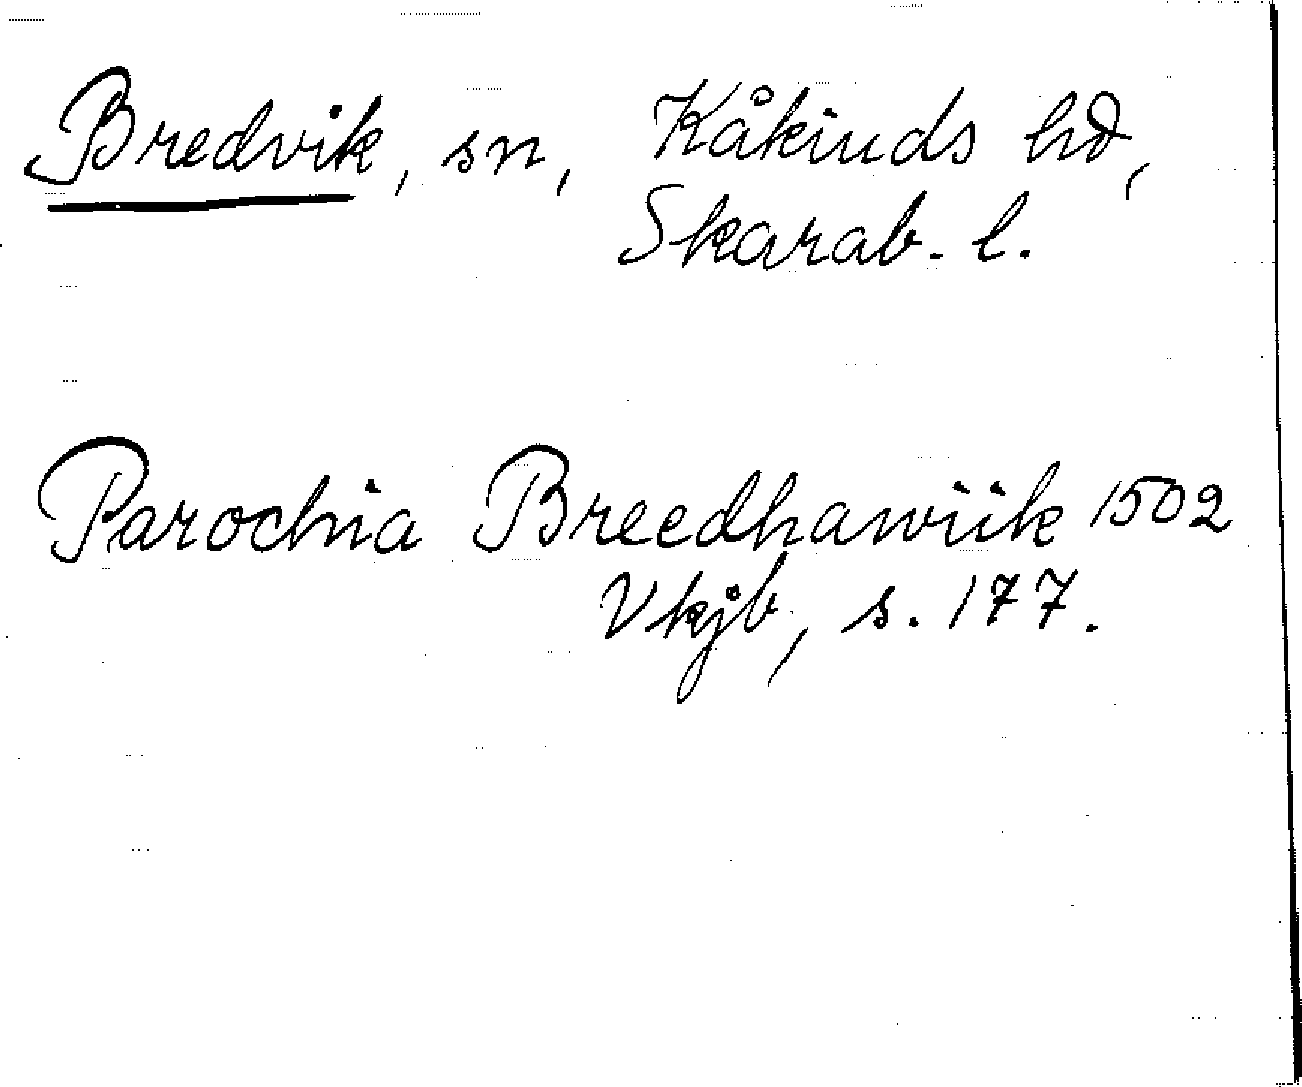 Bredvik, sn, Kåkinds hd,
Skarab. l.
Parochia Breedhawiik 1502
Vkjb, s. 177.